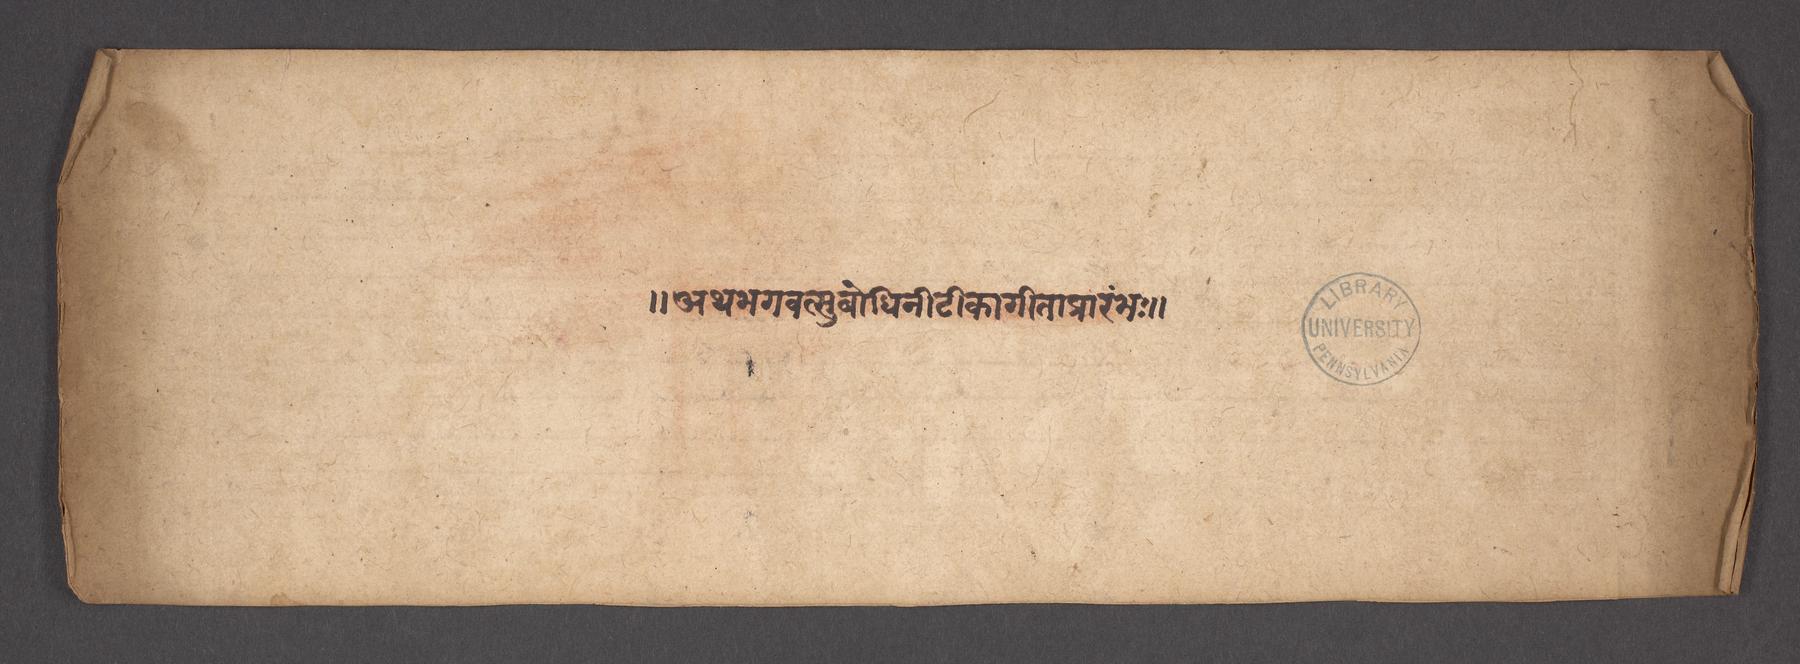 ॥अथभगवत्सुबोधिनीटीकागीताप्रारंभः॥
LIBRARY
UNIVERSITY
PENNSYLVANIA